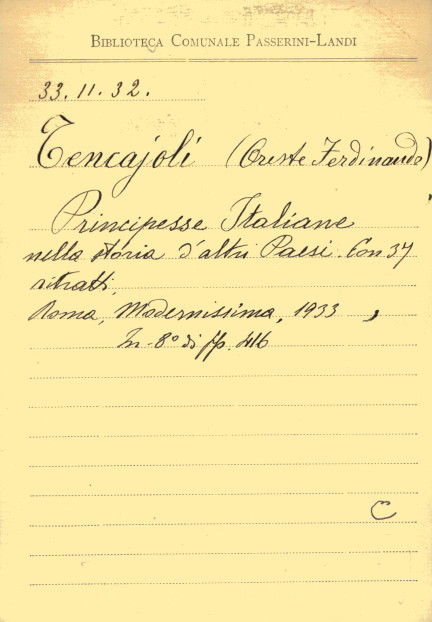 BIBLIOTECA COMUNALE PASSERINI-LANDI
33.11.32.
Tencajoli (Oreste Ferdinando)
Principesse Italiane
nella storia d'altri Paesi. Con 37
ritratti.
Roma, Modernissima, 1933
In-8° di pp. 416
C